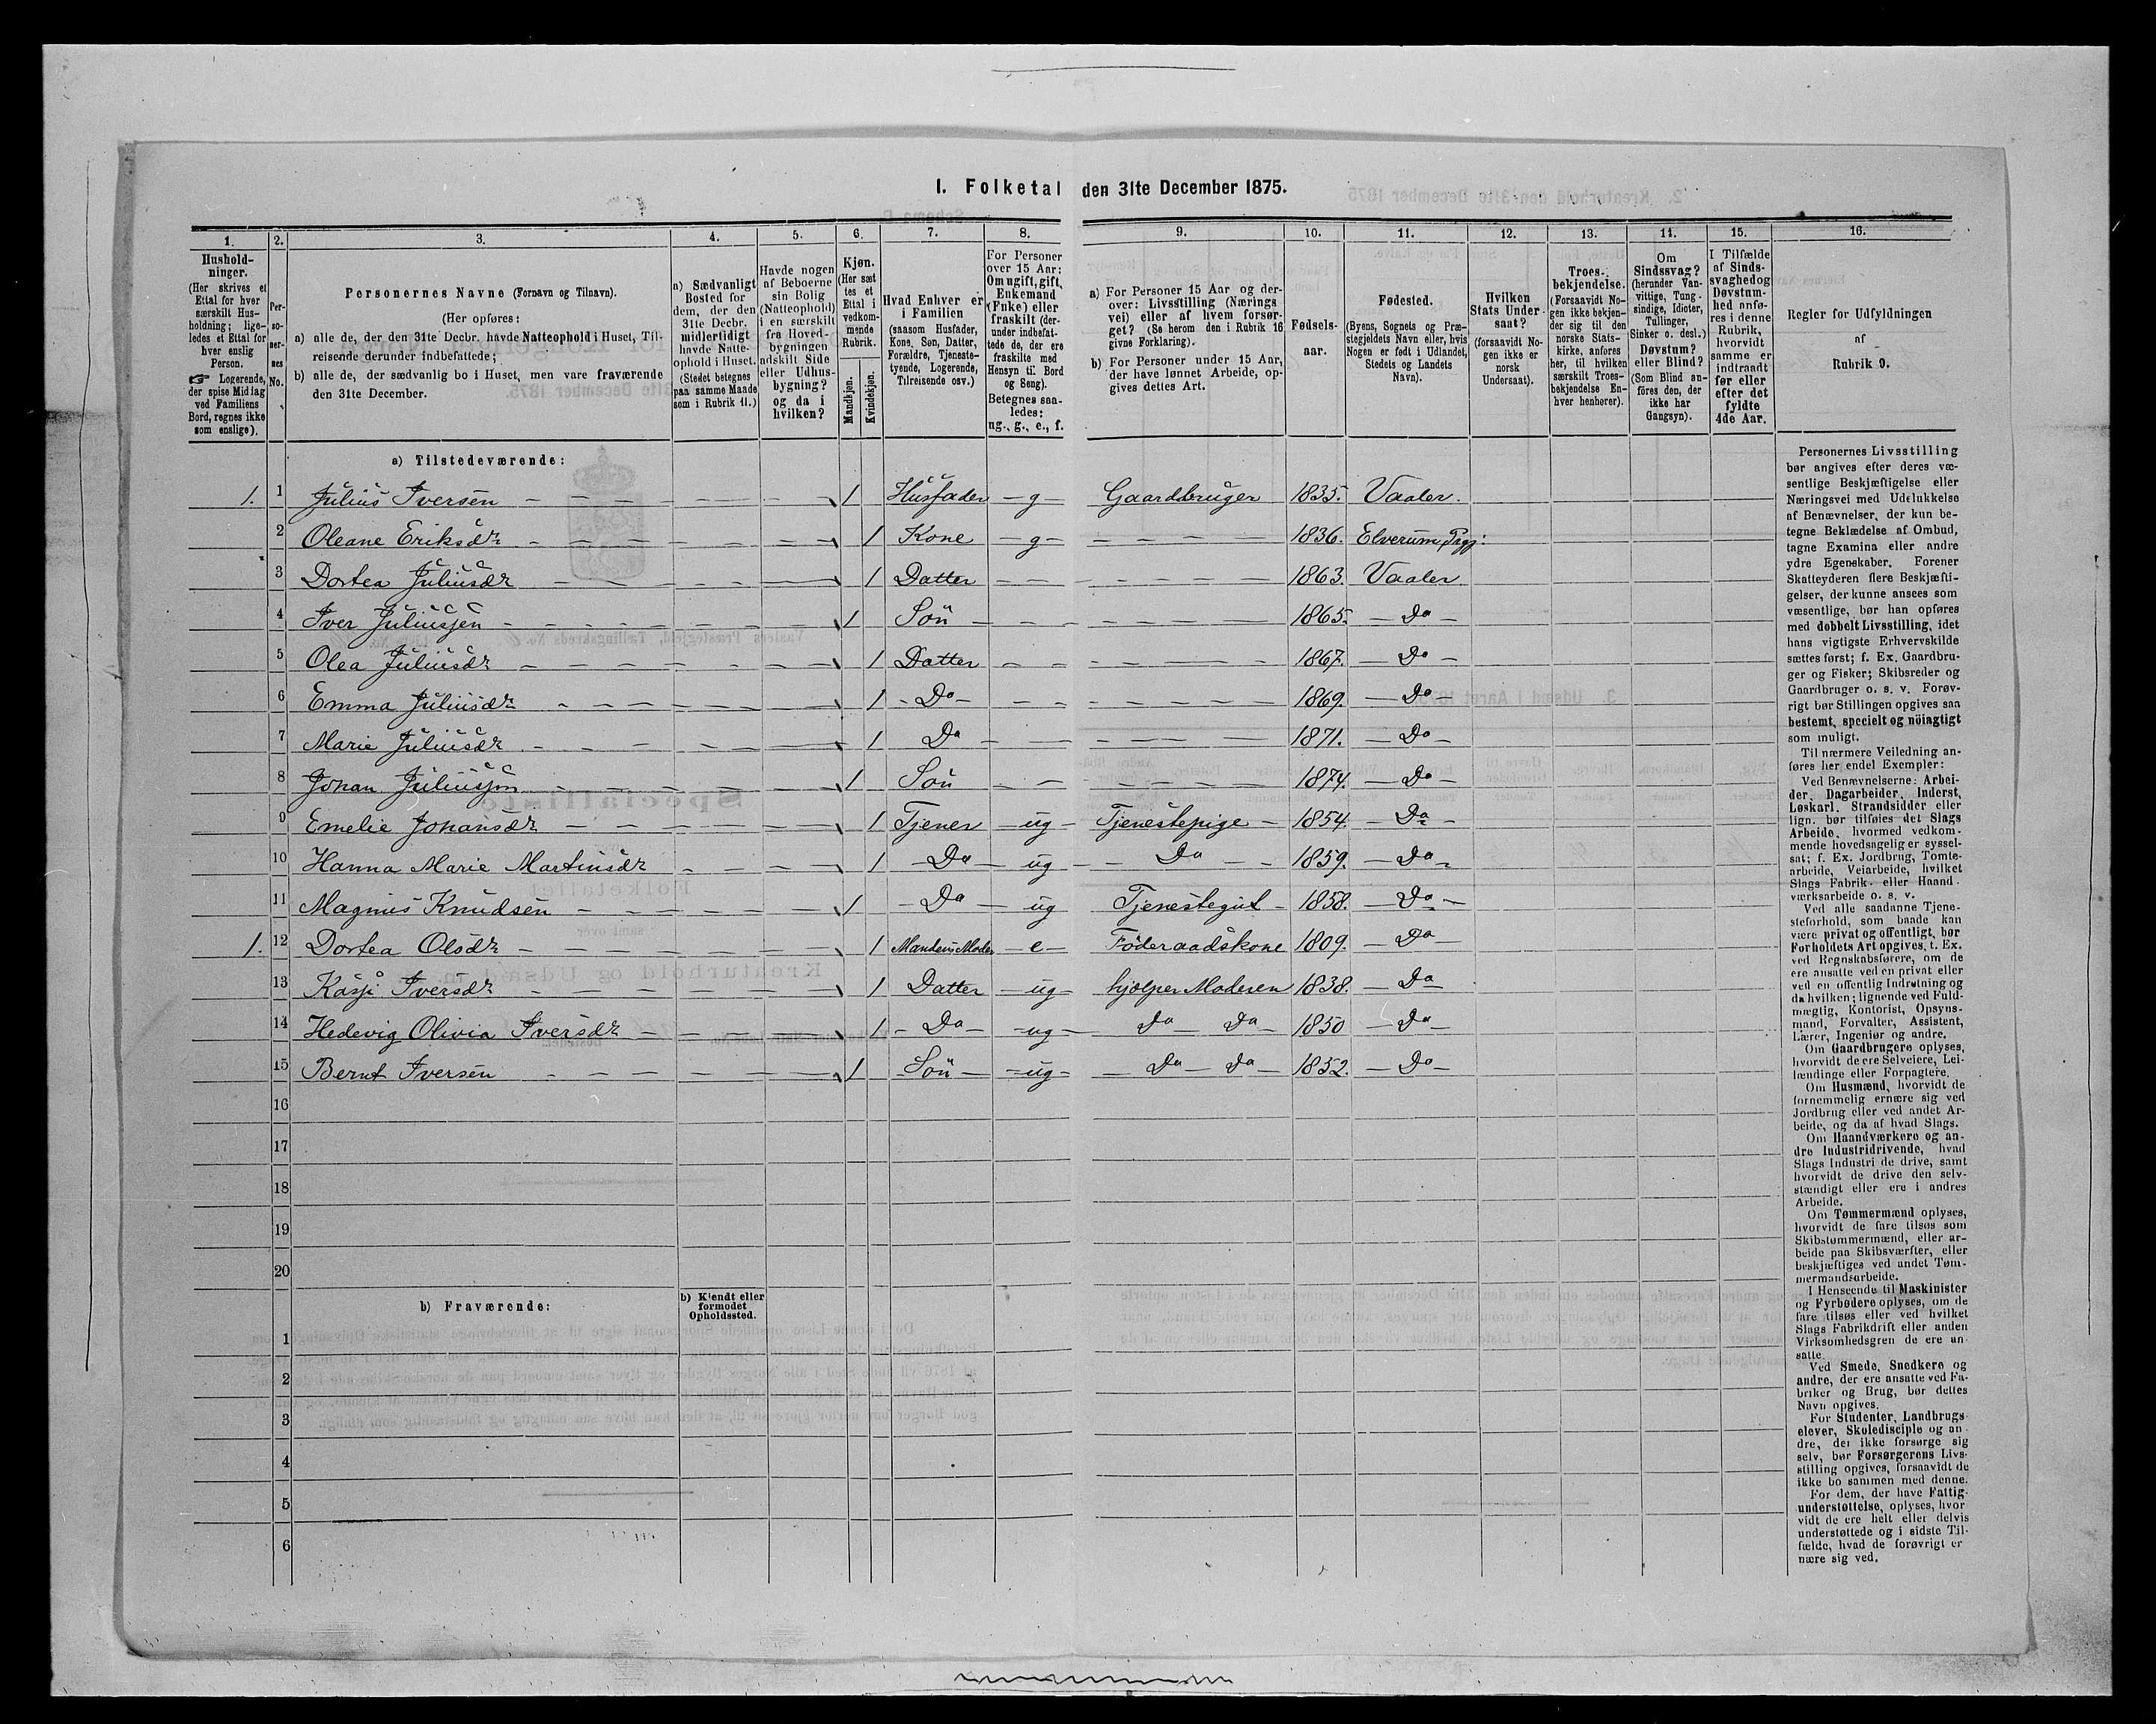 1. Folketal den 31te December 1875.
1. 2. 3. 4. 5. 6. 7. 8. 9. 10. 11. 12. 13. 14. 15. 16.
Hushold-
ninger.
(Her skrives et
Ettal for hver
særskilt Hus-
holdning; lige-
ledes et Ettal for
hver enslig
Person.
☞ Logerende,
der spise Middag
ved Familiens
Bord, regnes ikke
som enslige).
Per-
so-
ner-
nes
No.
Personernes Navne (Fornavn og Tilnavn).
(Her opføres:
a) alle de, der den 31te Decbr. havde Natteophold i Huset, Til-
reisende derunder indbefattede;
b) alle de, der sædvanlig bo i Huset, men vare fraværende
den 31te December.
a) Sædvanligt
Bosted for
dem, der den
31te Decbr.
midlertidigt
havde Natte-
ophold i Huset.
(Stedet betegnes
paa samme Maade
som i Rubrik 11.)
Havde nogen
af Beboerne
sin Bolig
(Natteophold)
i en særskilt
fra Hoved-
bygningen
adskilt Side
eller Udhus-
bygning?
og da i
hvilken?
Kjøn.
(Her sæt
tes et
Ettal i
vedkom-
mende
Rubrik.
Mandkjøn.
Kvindekjøn.
Hvad Enhver er
i Familien
(saasom Husfader,
Kone, Søn, Datter,
Forældre, Tjeneste-
tyende, Logerende,
Tilreisende osv.)
For Personer
over 15 Aar:
Om ugift, gift,
Enkemand
(Enke) eller
fraskilt (der-
under indbefat-
tede de, der ere
fraskilte med
Hensyn til Bord
og Seng).
Betegnes saa-
ledes:
ug., g., e., f.
a) For Personer 15 Aar og der-
over: Livsstilling (Nærings
vei) eller af hvem forsør-
get? (Se herom den i Rubrik 16
givne Forklaring).
b) For Personer under 15 Aar,
der have lønnet Arbeide, op-
gives dettes Art.
Fødsels-
aar.
Fødested.
(Byens, Sognets og Præ-
stegjeldets Navn eller, hvis
Nogen er født i Udlandet,
Stedets og Landets
Navn).
Hvilken
Stats Under
saat?
(forsaavidt No-
gen ikke er
norsk
Undersaat).
Troes-
bekjendelse.
(Forsaavidt No-
gen ikke bekjen-
der sig til den
norske Stats-
kirke, anføres
her, til hvilken
særskilt Troes-
bekjendelse En-
hver henhører).
Om
Sindssvag?
(herunder Van-
vittige, Tung-
sindige, Idioter,
Tullinger,
Sinker o. desl.)
Døvstum?
eller Blind?
(Som Blind an-
føres den, der
ikke har
Gangsyn).
I Tilfælde
af Sinds-
svaghed og
Døvstum-
hed anfø-
res i denne
Rubrik,
hvorvidt
samme er
indtraadt
før eller
efter det
fyldte
4de Aar.
Regler for Udfyldningen
af
Rubrik 9.
a) Tilstedeværende:
1. 1 Julius Iversen 1 Husfader g Gaardbruger 1835. Vaaler.
2 Oleane Eriksdr 1 Kone g 1836. Elverum Prgj:
3 Dortea Juliusdr 1 Datter 1863. Vaaler
4 Iver Juliussen 1 Sön 1865. Do
5 Olea Juliusdr 1 Datter 1867. Do
6 Emma Juliusdr 1 Do 1869. Do
7 Marie Juliusdr 1 Do 1871. Do
8 Johan Juliussen 1 Sön 1874. Do
9 Emelie Johansdr 1 Tjener ug Tjenestepige 1854. Do
10 Hanna Marie Martinsdr 1 Do ug Do 1859. Do
11 Magnus Knudsen 1 Do ug Tjenestegut 1858. Do
1. 12 Dortea Olsdr 1 Mandens Moder e Föderaadskone 1809. Do
13 Kasji Iversdr 1 Datter ug hjælper Moderen 1838. Do
14 Hedevig Olivia Iversdr 1 Do ug Do Do 1850 Do
15 Bernt Iversen 1 Sön ug Do Do 1852. Do
16
17
18
19
20
b) Fraværende:
b) Kjendt eller
formodet
Opholdssted.
1
2
3
4
5
6
Personernes Livsstilling
bør angives efter deres væ-
sentlige Beskjæftigelse eller
Næringsvei med Udelukkelse
af Benævnelser, der kun be-
tegne Beklædelse af Ombud,
tagne Examina eller andre
ydre Egenskaber. Forener
Skatteyderen flere Beskjæfti-
gelser, der kunne ansees som
væsentlige, bør han opføres
med dobbelt Livsstilling, idet
hans vigtigste Erhvervskilde
sættes først; f. Ex. Gaardbru-
ger og Fisker; Skibsreder og
Gaardbruger o. s. v. Forøv-
rigt bør Stillingen opgives saa
bestemt, specielt og nöiagtigt
som muligt.
Til nærmere Veiledning an-
føres her endel Exempler:
Ved Benævnelserne: Arbei-
der, Dagarbeider, Inderst,
Løskarl, Strandsidder eller
lign. bør tilføies det Slags
Arbeide, hvormed vedkom-
mende hovedsagelig er syssel-
sat; f. Ex. Jordbrug, Tomte-
arbeide, Veiarbeide, hvilket
Slags Fabrik- eller Haand
værksarbeide o. s. v.
Ved alle saadanne Tjene-
steforhold, som baade kan
være privat og offentligt, bør
Forholdets Art opgives, t. Ex.
ved Regnskabsførere, om de
ere ansatte ved en privat eller
ved en offentlig Indretning og
da hvilken; lignende ved Fuld-
mægtig, Kontorist, Opsyns-
mand, Forvalter, Assistent,
Lærer, Ingeniør og andre.
Om Gaardbrugere oplyses,
hvorvidt de ere Selveiere, Lei-
lændinge eller Forpagtere.
Om Husmænd, hvorvidt de
fornemmelig ernære sig ved
Jordbrug eller ved andet Ar-
beide, og da af hvad Slags.
Om Haandværkere og an-
dre Industridrivende, hvad
Slags Industri de drive, samt
hvorvidt de drive den selv-
stændigt eller ere i andres
Arbeide.
Om Tømmermænd oplyses,
hvorvidt de fare tilsøs som
Skibstømmermænd, eller ar-
beide paa Skibsværfter, eller
beskjæftiges ved andet Tøm-
mermandsarbeide.
I Henseende til Maskinister
og Fyrbødere oplyses, om de
fare tilsøs eller ved hvilket
Slags Fabrikdrift eller anden
Virksomhedsgren de ere an-
satte.
Ved Smede, Snedkere og
andre, der ere ansatte ved Fa-
briker og Brug, bør dettes
Navn opgives.
For Studenter, Landbrugs-
elever, Skoledisciple og an-
dre, der ikke forsørge sig
selv, bør Forsørgerens Livs-
stilling opgives, forsaavidt de
ikke bo sammen med denne.
For dem, der have Fattig-
understøttelse, oplyses, hvor
vidt de ere helt eller delvis
understøttede og i sidste Til-
fælde, hvad de forøvrigt er
nære sig ved.